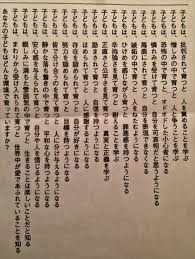 子どもは、批判されて育つと 人を責めることを学ぶ
子どもは、憎しみの中で育つと 人と争うことを学ぶ
子どもは、恐怖の中で育つと オドオドした小心者になる
子どもは、憐れみを受けて育つと 自分が可哀想だと思うようになる
子どもは、馬鹿にされて育つと 自分を表現できなくなる
子どもは、嫉妬の中で育つと 人をねたむようになる
子どもは、ひけめを感じながら育つと 罪悪感を持つようになる
子どもは、辛抱強さを見て育つと 耐えることを学ぶ
子どもは、正直さと公平さを見て育つと 真実と正義を学ぶ
子どもは、励まされて育つと 自信を持つようになる
子どもは、ほめられて育つと 人に感謝するようになる
子どもは、存在を認められて育つと 自分が好きになる
子どもは、努力を認められて育つと 目標を持つようになる
子どもは、皆で分け合うのを見て育つと 人に分け与えるようになる
子どもは、静かな落ち着きの中で育つと 平和な心を持つようになる
子どもは、安心感を与えられて育つと 自分や人を信じるようになる
子どもは、親しみに満ちた雰囲気の中で育つと 生きることは楽しいことだと知る
子どもは、まわりから受け入れられて育つと 世界中が愛であふれていることを知る
あなたの子どもはどんな環境で育っていますか?